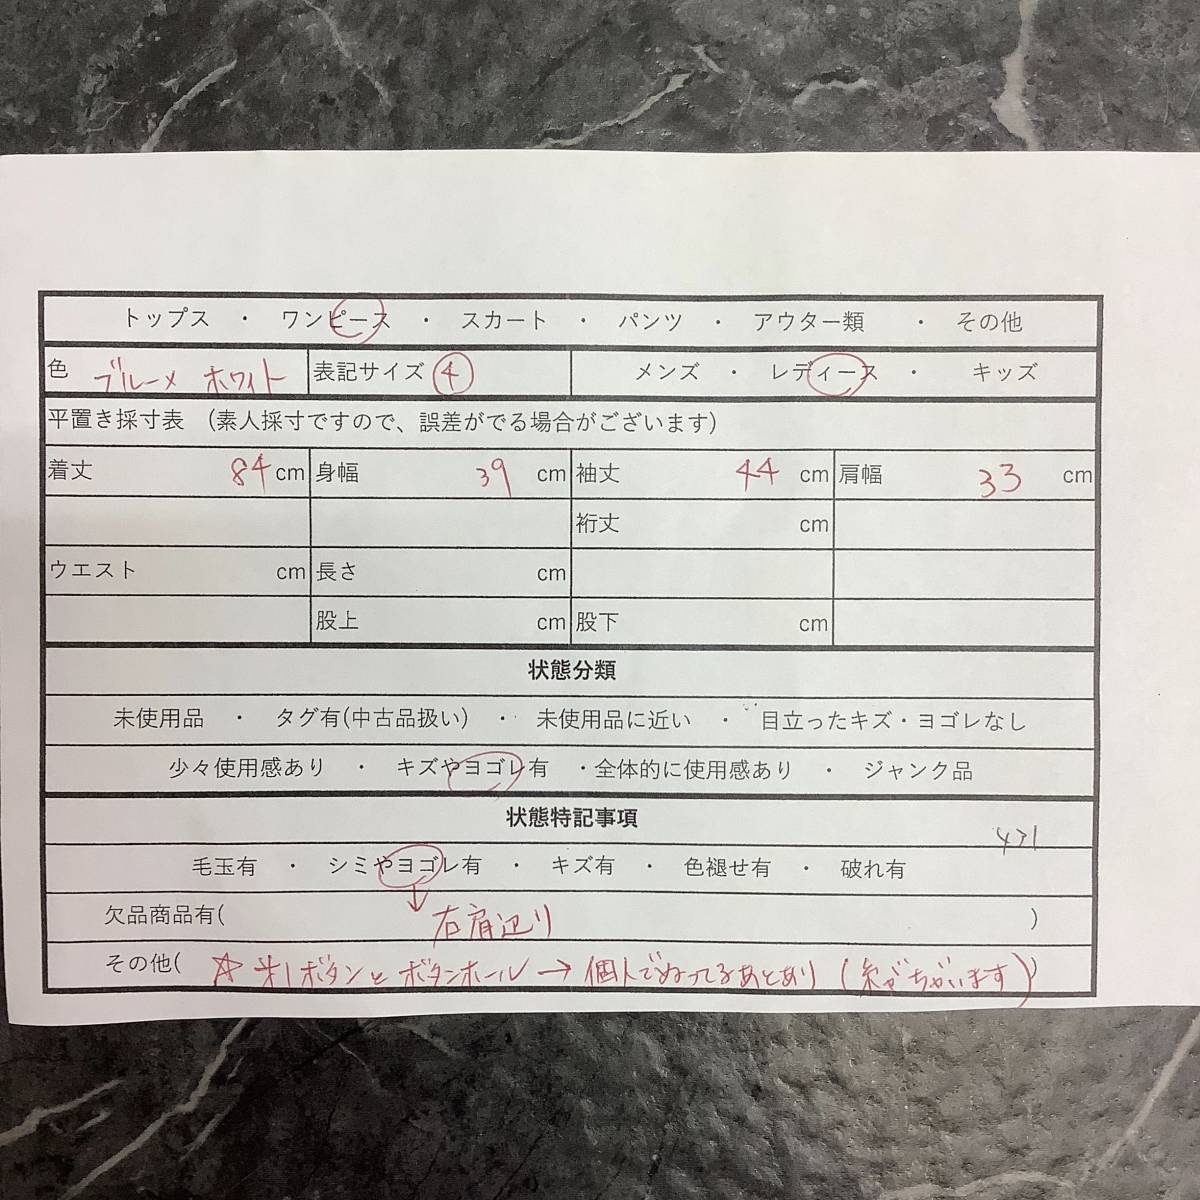 トップス ・ ワンピース ・ スカート ・ パンツ ・ アウター類 ・ その他
色 ブルーメ ホワイト 表記サイズ ④ メンズ ・ レディース ・ キッズ
平置き採寸表 (素人採寸ですので、誤差がでる場合がございます)
着丈 84 cm 身幅 39 cm 袖丈 44 cm 肩幅 33 cm
裄丈 cm
ウエスト cm 長さ cm
股上 cm 股下 cm
状態分類
未使用品 ・ タグ有(中古品扱い) ・ 未使用品に近い ・ 目立ったキズ・ヨゴレなし
少々使用感あり ・ キズやヨゴレ有 ・全体的に使用感あり ・ ジャンク品
状態特記事項
毛玉有 ・ シミやヨゴレ有 ・ キズ有 ・ 色褪せ有 ・ 破れ有
欠品商品有( ↓ 右肩辺り )
その他( ☆ ボタンとボタンホール → 個人でぬってるあとあり (糸がちがいます) )